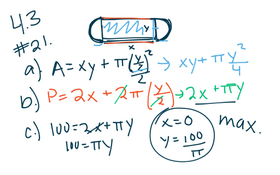 4.3
y
x
#21.
a) A = xy + π(y/2)²/2 → xy + πy²/4
b) P = 2x + 2π(y/2) → 2x + πy
c) 100 = 2x + πy
100 = πy
x = 0
y = 100/π
max.